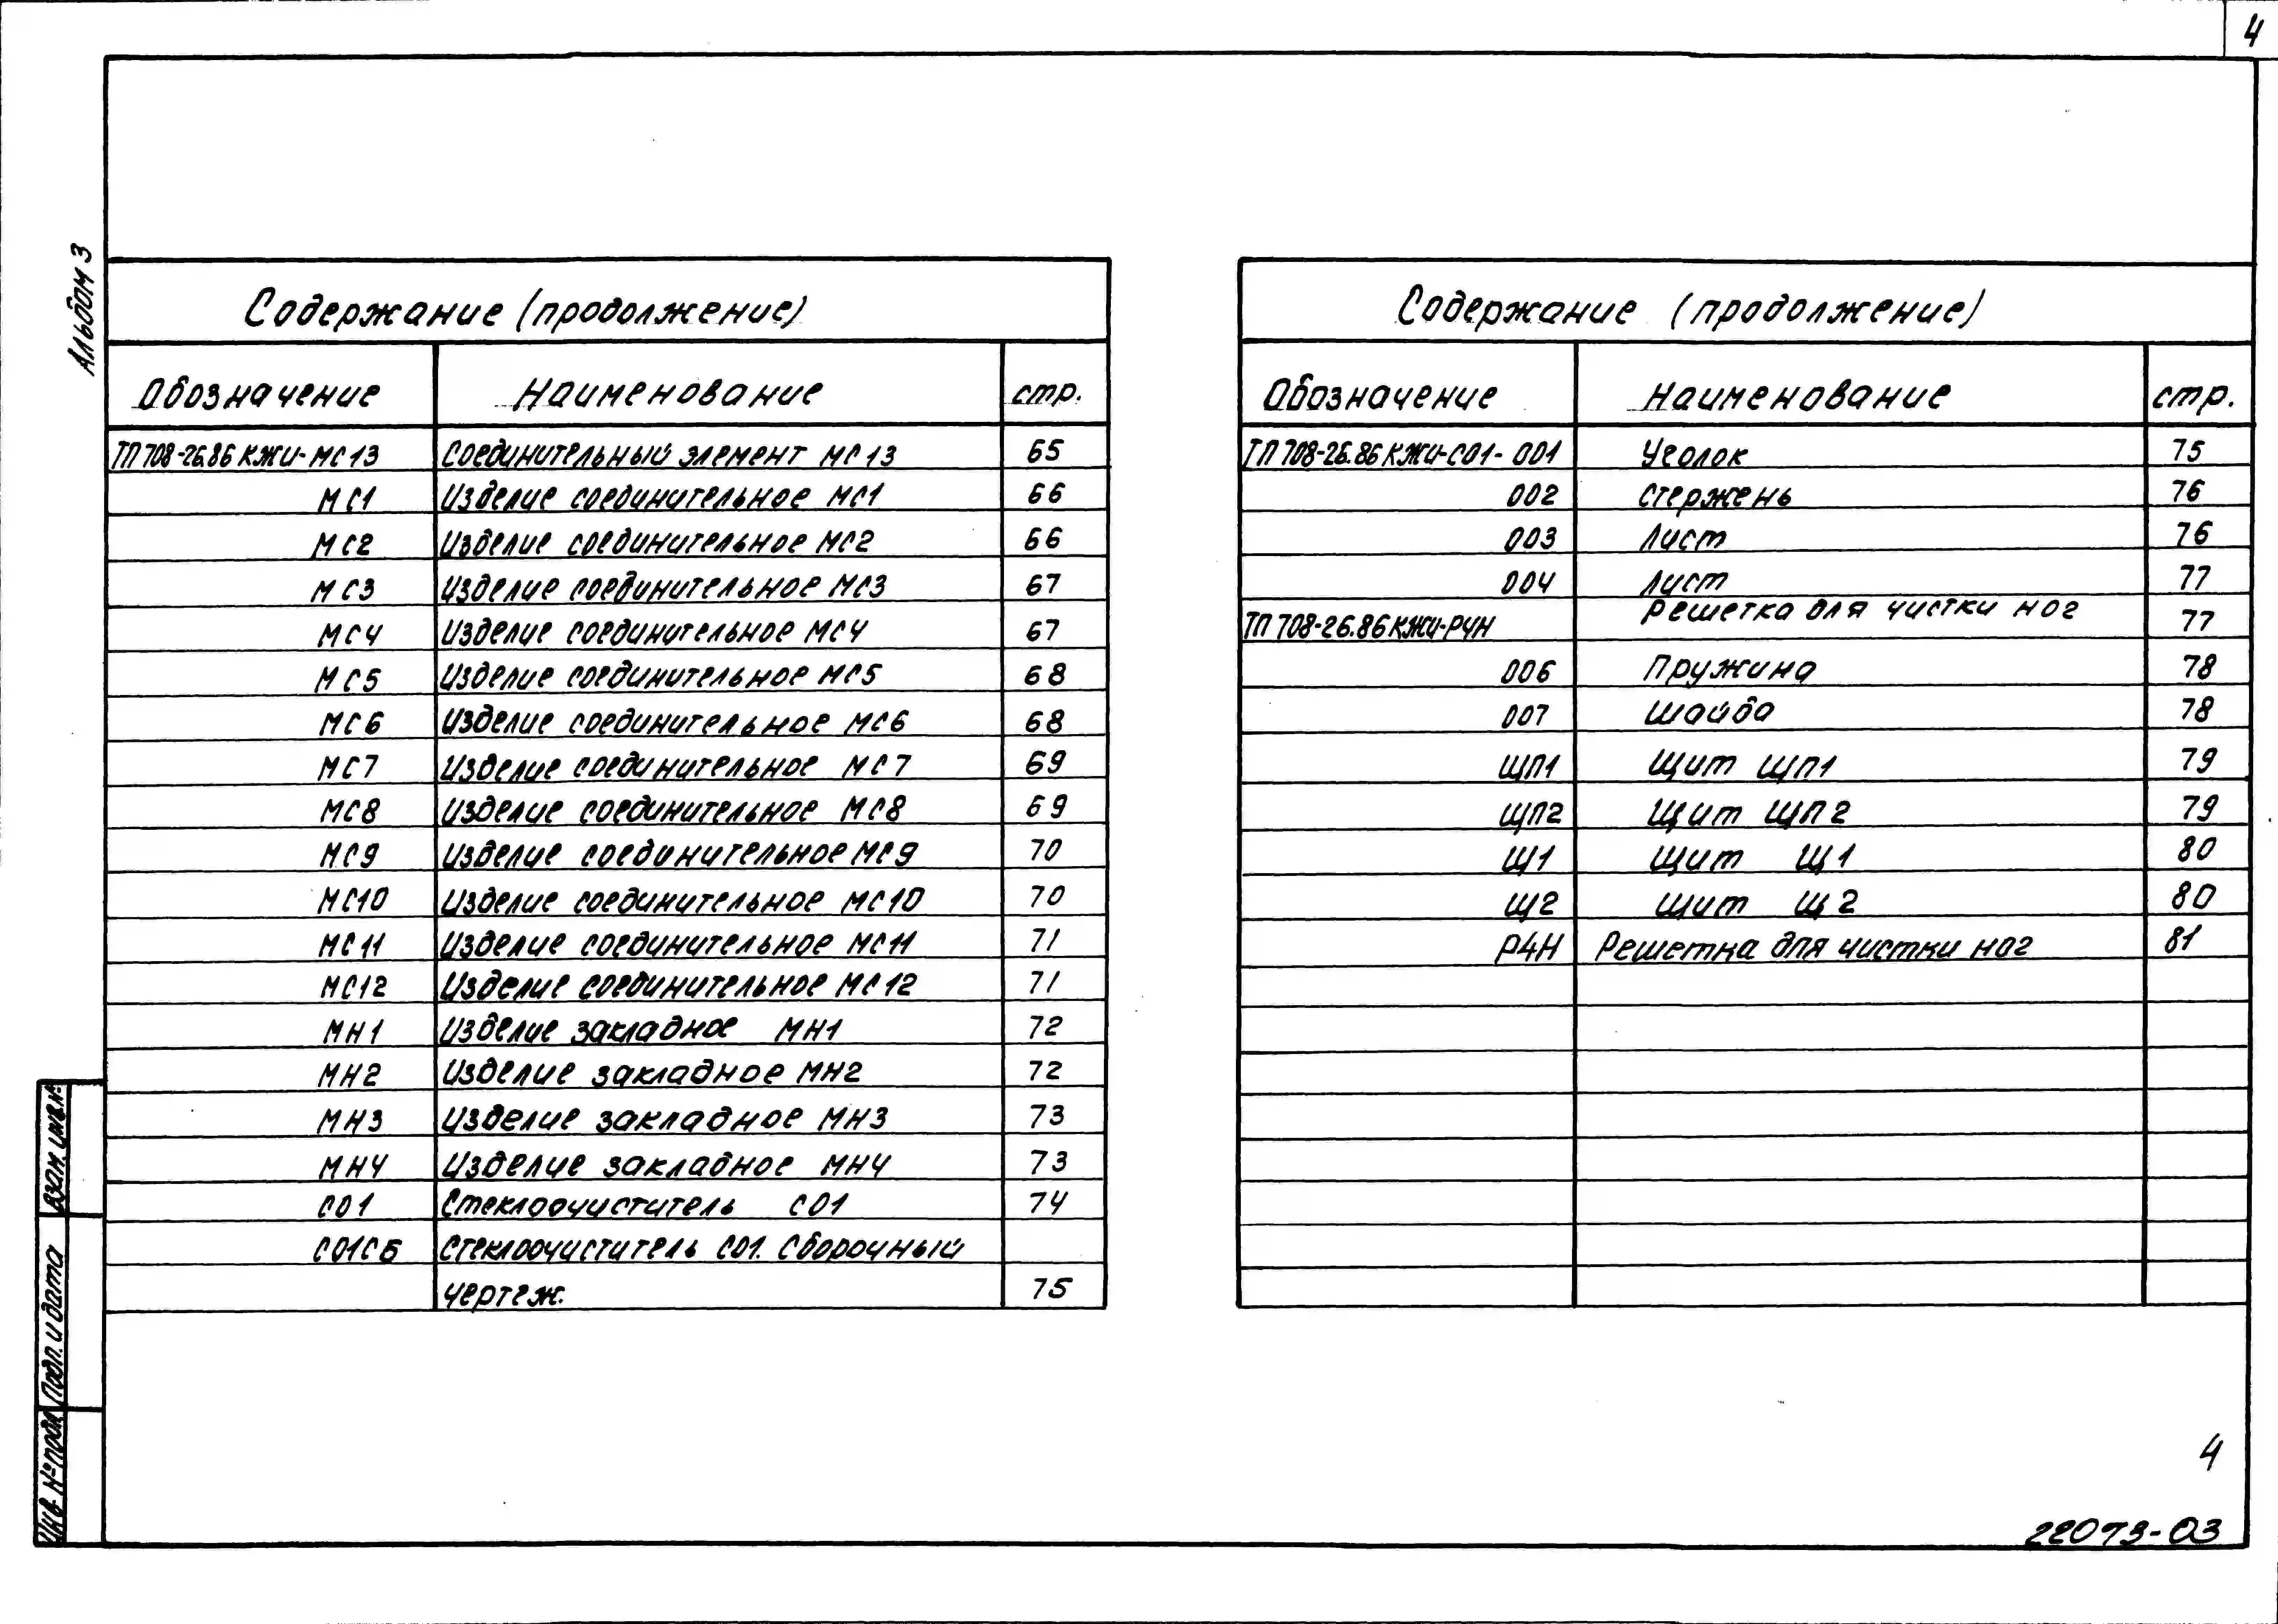 4
Альбом 3
Содержание (продолжение)
Обозначение Наименование стр.
ТП 708-26.86 КЖИ-МС13 Соединительный элемент МС13 65
МС1 Изделие соединительное МС1 66
МС2 Изделие соединительное МС2 66
МС3 Изделие соединительное МС3 67
МС4 Изделие соединительное МС4 67
МС5 Изделие соединительное МС5 68
МС6 Изделие соединительное МС6 68
МС7 Изделие соединительное МС7 69
МС8 Изделие соединительное МС8 69
МС9 Изделие соединительное МС9 70
МС10 Изделие соединительное МС10 70
МС11 Изделие соединительное МС11 71
МС12 Изделие соединительное МС12 71
МН1 Изделие закладное МН1 72
МН2 Изделие закладное МН2 72
МН3 Изделие закладное МН3 73
МН4 Изделие закладное МН4 73
С01 Стеклоочиститель С01 74
С01СБ Стеклоочиститель С01. Сборочный
чертеж. 75
Содержание (продолжение)
Обозначение Наименование стр.
ТП 708-26.86 КЖИ-С01-001 Уголок 75
002 Стержень 76
003 Лист 76
004 Лист 77
ТП 708-26.86 КЖИ-РЧН Решетка для чистки ног 77
006 Пружина 78
007 Шайба 78
ЩП1 Щит ЩП1 79
ЩП2 Щит ЩП2 79
Щ1 Щит Щ1 80
Щ2 Щит Щ2 80
Р4Н Решетка для чистки ног 81
Взам. инв.№
Подп. и дата
Инв. № подл.
4
22073-03